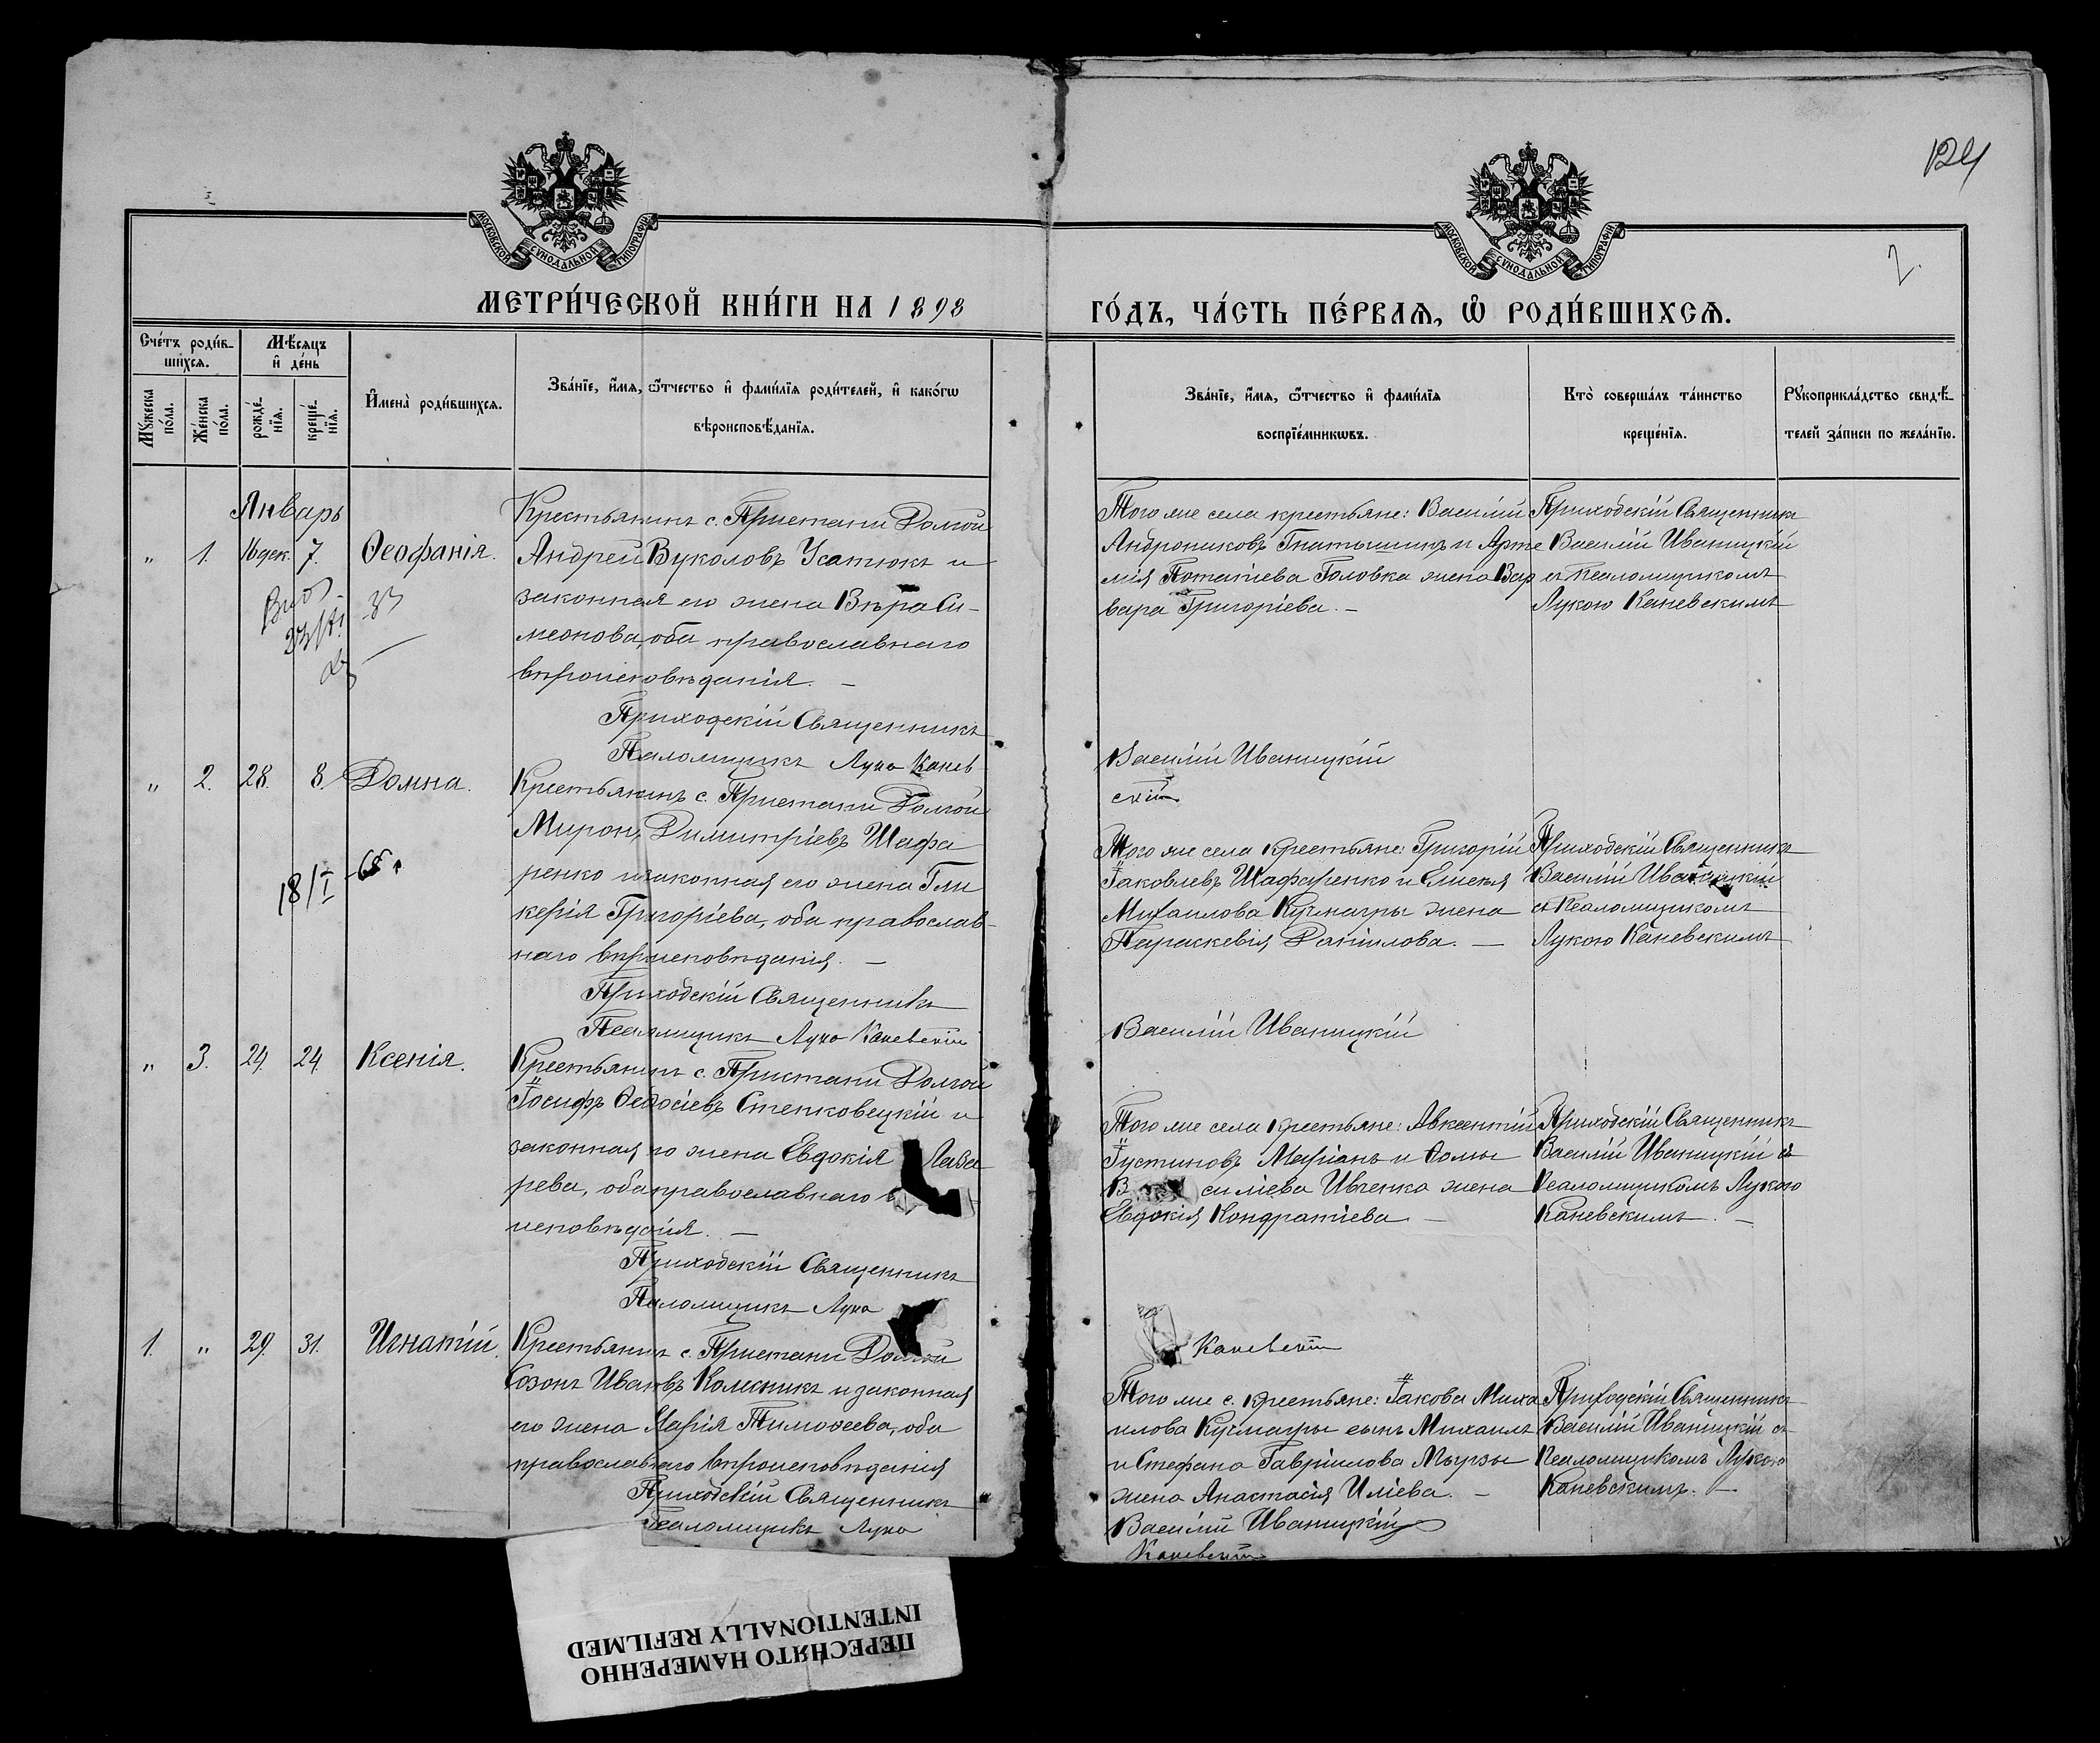 124
2.
МОСКОВСКОЙ СѴНОДАЛЬНОЙ ТИПОГРАФІИ
МОСКОВСКОЙ СѴНОДАЛЬНОЙ ТИПОГРАФІИ
МЕТРИ́ЧЕСКОЙ КНИ́ГИ НА 1898
ГО́ДЪ, ЧА́СТЬ ПЕ́РВАѦ, Ѽ РОДИ́ВШИХСѦ.
Сче́тъ роди́в-
шихсѧ.
Мѣ́сѧцъ
и҆ де́нь
Мꙋ́жеска
по́ла.
Же́нска
по́ла.
рожде́-
нїѧ.
креще́-
нїѧ.
И҆мена̀ роди́вшихсѧ.
Зва́нїе, и҆́мѧ, ѻ҆́тчество и҆ фами́лїѧ роди́телей, и҆ како́гѡ
вѣроисповѣ́данїѧ.
Зва́нїе, и҆́мѧ, ѻ҆́тчество и҆ фами́лїѧ
воспрїе́мникѡвъ.
Кто̀ соверша́лъ та́инство
креще́нїѧ.
Рꙋкоприкла́дство свидѣ́-
телей за́писи по жела́нїю.
Январь
" 1. 16 дек. 7. Ѳеофанія.
Крестьянинъ с. Пристани Долгой
Андрей Вуколовъ Усатюкъ и
законная его жена Вѣра Си-
меонова, оба православнаго
вѣроисповѣданія. –
Приходскій Священникъ
Псаломщикъ Лука Канев
Того же села крестьяне: Василій
Андрониковъ Гнатышинъ и Арте
мія Потапіева Головка жена Вар
вара Григоріева. –
Приходскій Священникъ
Василій Иваницкій
съ Псаломщикомъ
Лукою Каневскимъ
Василій Иваницкій
скій
" 2. 28. 8. Домна.
18/I -65 г
Крестьянинъ с. Пристани Долгой
Миронъ Димитріевъ Шафа
ренко и законная его жена Гли
керія Григоріева, оба православ-
наго вѣроисповѣданія. –
Приходскій Священникъ
Псаломщикъ Лука Каневскій
Того же села крестьяне: Григорій
Іаковлевъ Шафаренко и Елисея
Михаилова Кучмагры жена
Параскевія Даніилова. –
Приходскій Священникъ
Василій Иваницкій
съ Псаломщикомъ
Лукою Каневскимъ
Василій Иваницкій
" 3. 24. 24. Ксенія.
Крестьянинъ с. Пристани Долгой
Іосифъ Ѳеодосіевъ Стенковецкій и
законная его жена Евдокія Лаза
рева, оба православнаго
исповѣданія. –
Приходскій Священникъ
Псаломщикъ Лука
Того же села крестьяне: Авксентій
Іустиновъ Маріанъ и Ѳомы
В силіева Ивченка жена
Евдокія Кондратіева –
Приходскій Священникъ
Василій Иваницкій съ
Псаломщикомъ Лукою
Каневскимъ. –
Каневскій
1. " 29. 31. Игнатій.
Крестьянинъ с. Пристани Долгой
Созонъ Ивановъ Колесникъ и законная
его жена Марія Тимоѳеева, оба
православнаго вѣроисповѣданія
Приходскій Священникъ
Псаломщикъ Лука
Того же с. крестьяне: Іакова Миха
илова Кучмагры сынъ Михаилъ
и Стефана Гавріилова Мырзы
жена Анастасія Иліева. –
Приходскій Священникъ
Василій Иваницкій съ
Псаломщикомъ Лукою
Каневскимъ. –
Василій Иваницкій
Каневскій
ПЕРЕСНЯТО НАМЕРЕННО
INTENTIONALLY REFILMED